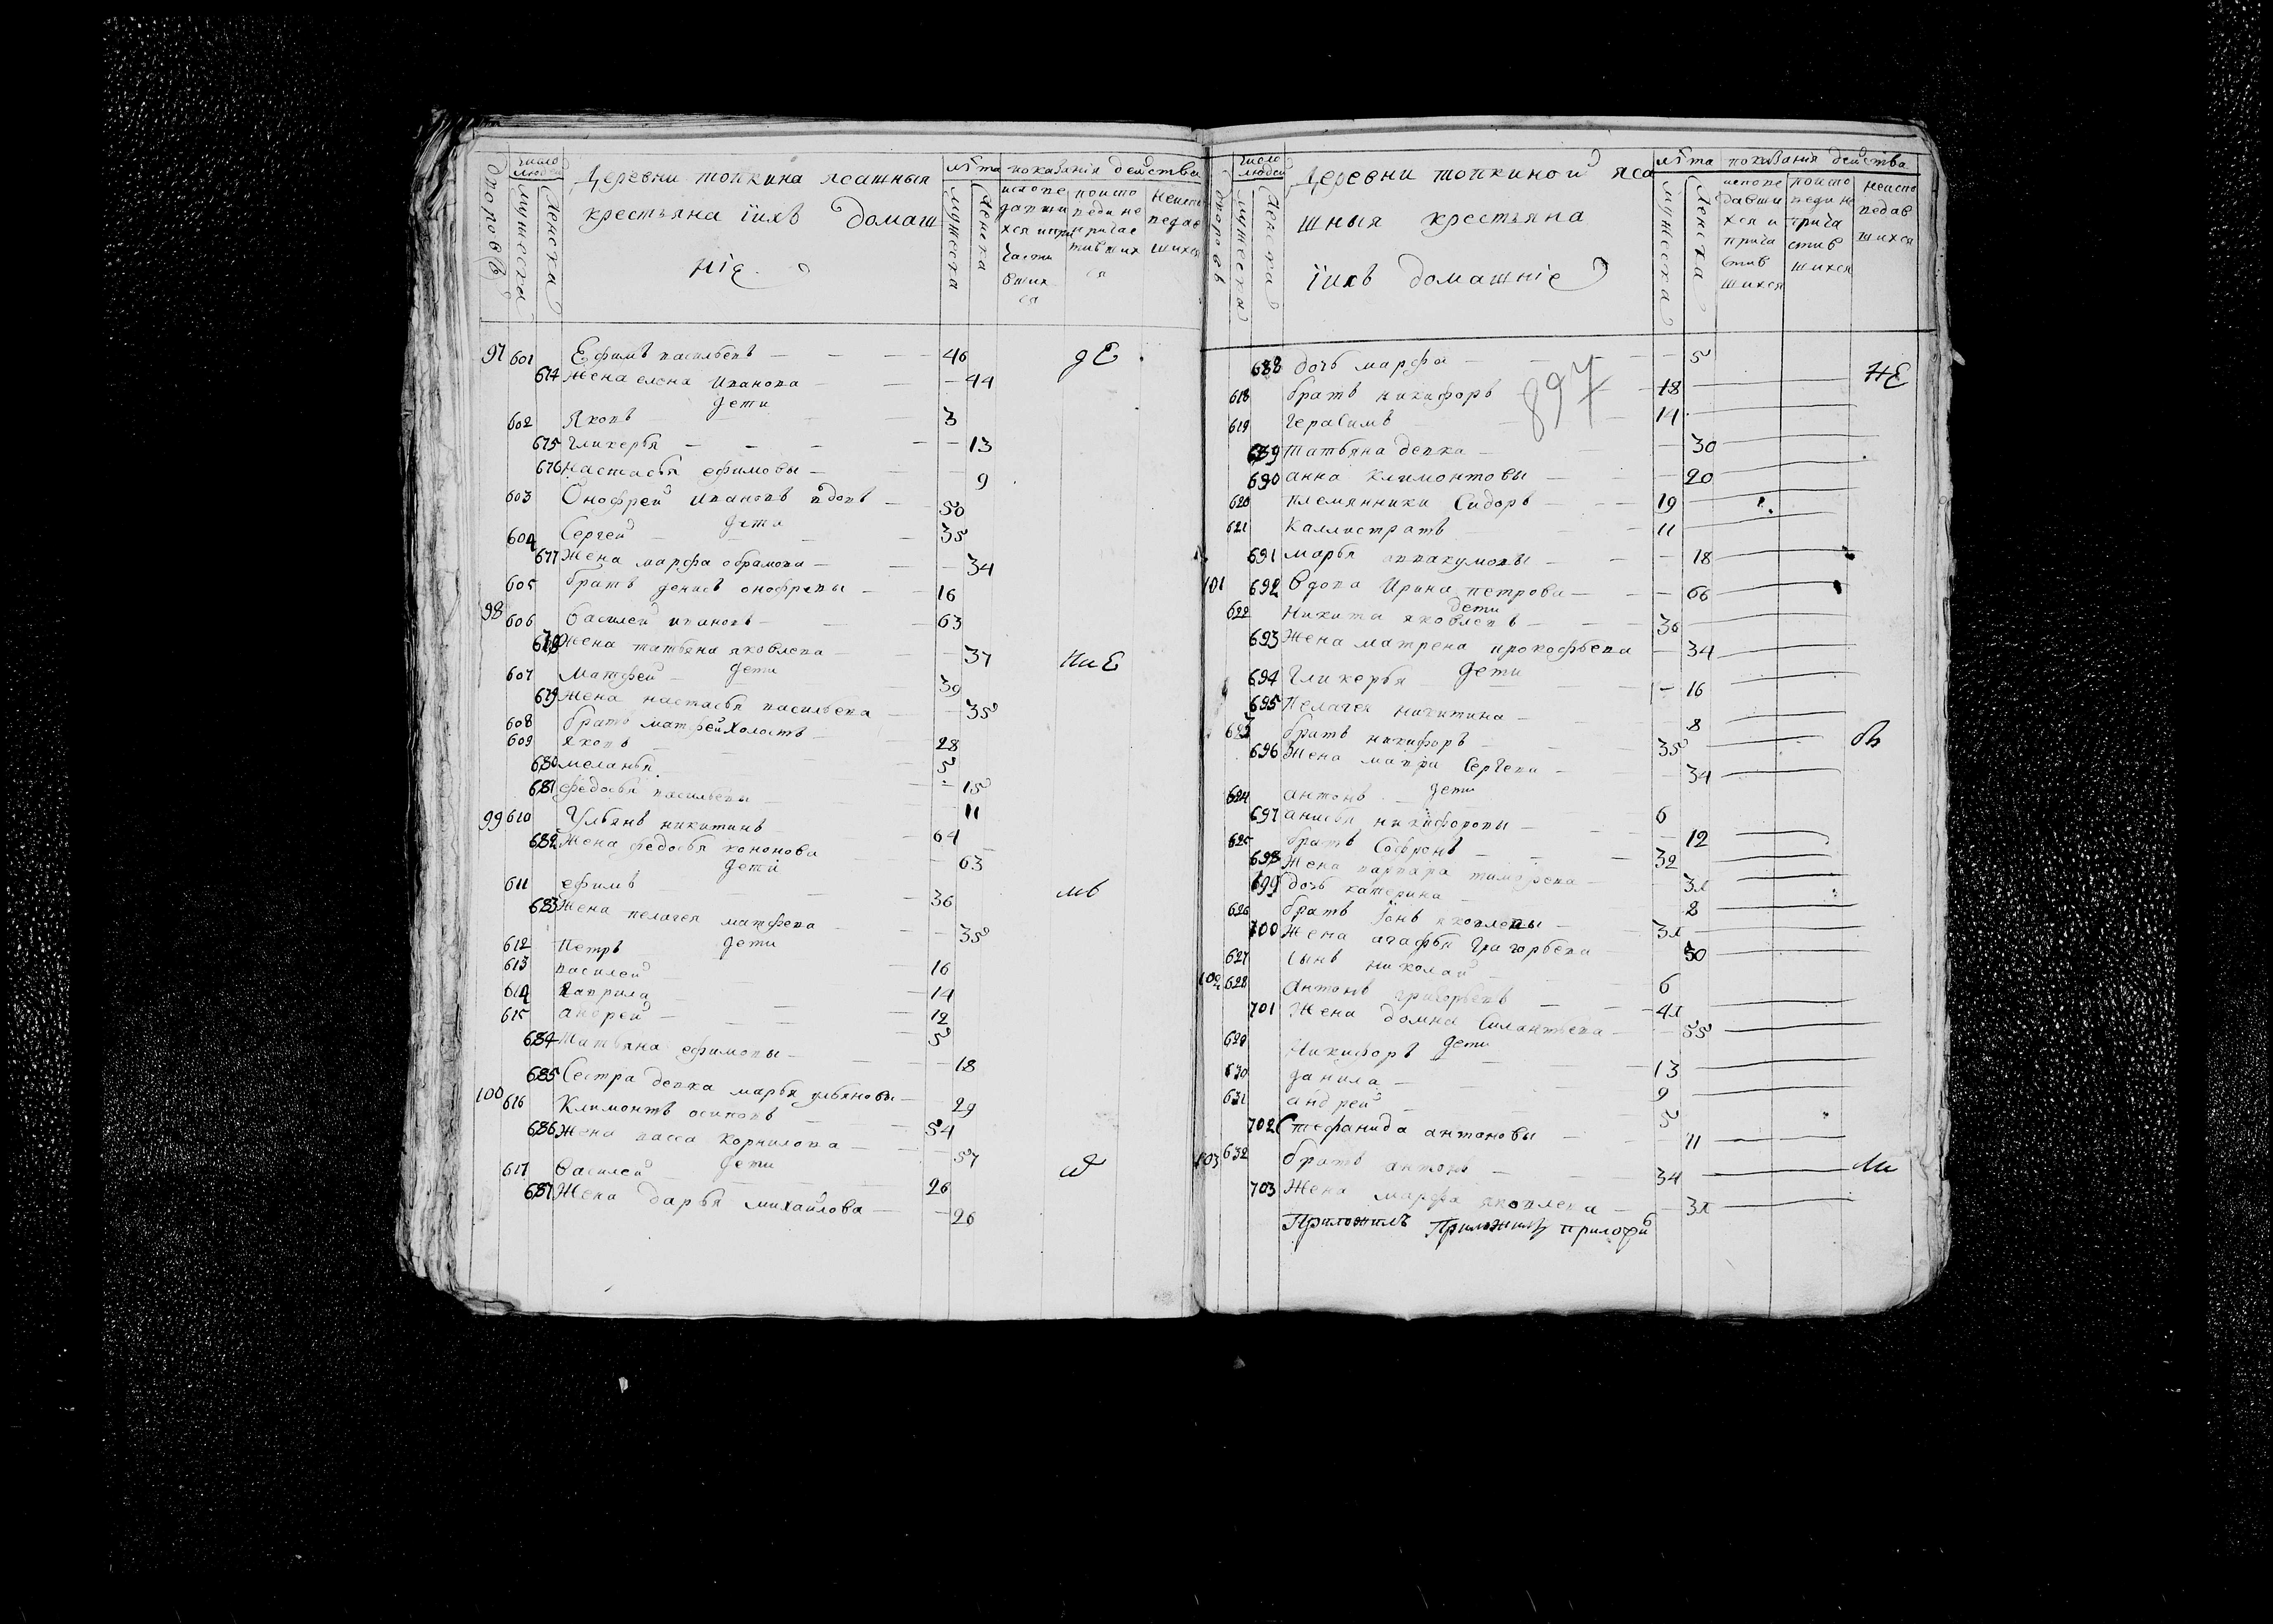 дворовъ
число людей
мужеска
женска
Деревни топкина ясашныя
крестьяна іихъ домаш
ніе
лѣта
мужеска
женска
показанія действа
97 601 Ефимъ васильевъ — 46
674 Жена елена иванова — 44
дети
602 Яковъ 3
675 гликерья — 13
676 настасья ефимовы — 9
603 Онофрей ивановъ вдовъ — 50
дети
604 Сергей — 35
677 Жена марфа обрамова — 34
605 братъ денисъ онофревы — 16
98 606 Василей ивановъ — 63
678 Жена татьяна яковлева — 37
дети
607 Матфей — 39
679 Жена настасья васильева — 35
608 братъ матфей холостъ — 28
609 яковъ 5
680 меланья — 15
681 федосья васильевы 11
99 610 Ульянъ никитинъ — 64
682 Жена федосья кононова — 63
дети
611 ефимъ — 36
683 Жена пелагея матфева — 35
дети
612 Петръ — 16
613 василей — 14
614 гаврила — 12
615 андрей — 5
684 Татьяна ефимовы — 18
685 Сестра девка марья ульяновы — 29
100 616 Климонтъ осиповъ — 54
686 Жена васса корнилова — 57
дети
617 Василей 26
687 Жена дарья михайлова — 26
дворовъ
число людей
мужеска
женска
Деревни топкиной яса
шныя крестьяна
іихъ домашніе
лѣта
мужеска
женска
показания действа
испове
давши
хся и
прича
стив
шихся
неиспо
ведав
шихся
897
688 дочь марфа — 5
618 братъ никифоръ — 18
НЕ
619 герасимъ 14
689 татьяна девка — 30
690 анна климонтовы — 20
620 племянники Сидоръ — 19
621 Каллистратъ — 11
691 марья аввакумовы — 18
101 692 Вдова Ирина петрова — 66
дети
622 Никита яковлевъ — 36
693 Жена матрена прокофьева — 34
дети
694 гликерья — 16
695 Пелагея никитина — 8
623 братъ никифоръ — 35
696 Жена мавра Сергева — 34
дети
624 антонъ 6
697 анисья никифоровы — 12
625 братъ Софронъ — 32
698 Жена варвара тимофева —
699 дочь катерина 2
626 братъ іонъ яковлевы
700 Жена агафья григорьева — 30
627 сынъ николай — 6
102 628 Антонъ григорьевъ —
701 Жена домна Силантьева — 55
дети
629 Никифоръ — 13
630 данила — 9
631 андрей — 5
702 Стефанида антоновы — 11
103 632 братъ антонъ — 34
703 Жена марфа яковлева —
Приложилъ Приложилъ